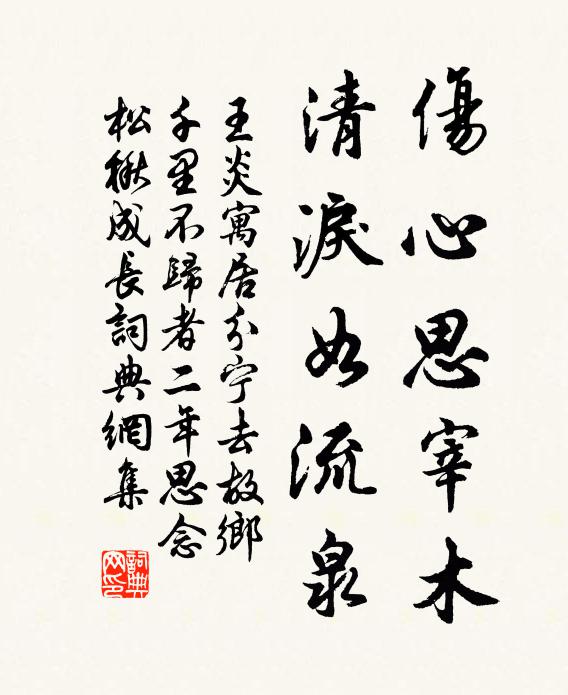 傷心思宰木
清淚如流泉
王炎寓居分宁去故鄉
千里不歸者二年思念
松楸成長詞典網集
詞典
网印